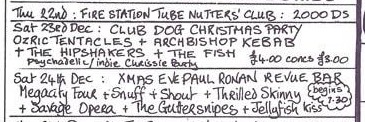 Thu 22nd : FIRE STATION TUBE NUTTERS' CLUB : 2000 DS
Sat 23rd Dec : CLUB DOG CHRISTMAS PARTY
OZRIC TENTACLES + ARCHBISHOP KEBAB
+ THE HIPSHAKERS + THE FISH £4.00 concs £3.00
Psychadelic/indie Chrissie Party
Sat 24th Dec : XMAS EVE PAUL RONAN REVUE BAR
Megacity Four + Snuff + Shout + Thrilled Skinny (begins 7.30)
+ Savage Opera + The Guttersnipes + Jellyfish Kiss